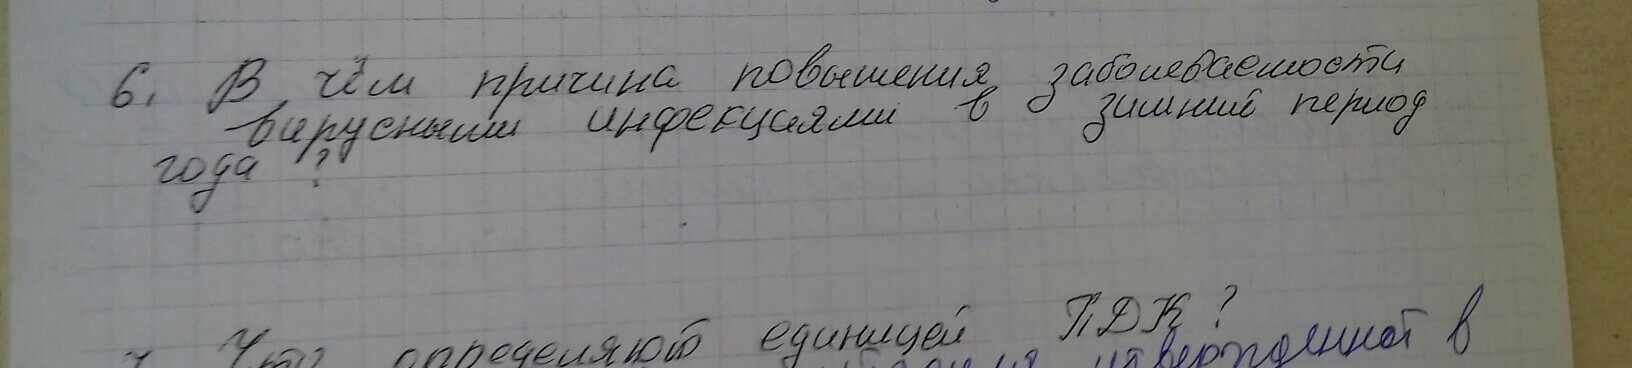 6. В чём причина повышения заболеваемости
вирусными инфекциями в зимний период
года ?
7. Что определяют единицей ПДК?
утвержденной в